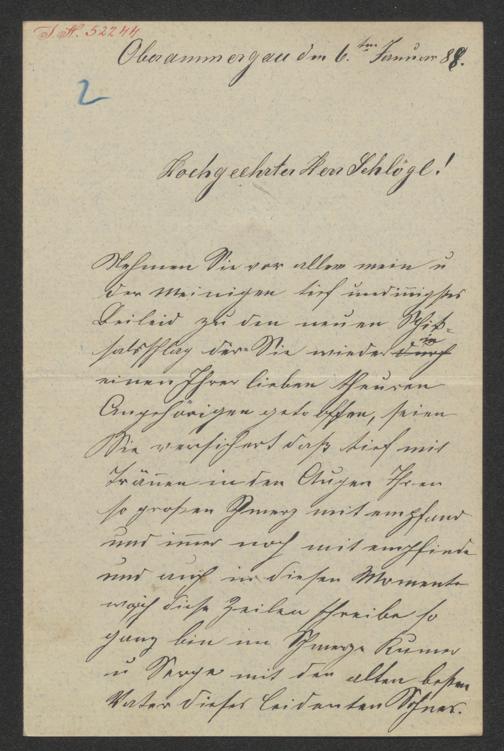 I. N. 52244
Oberammergau den 6.ten Januar 88.
2
Hochgeehrter Herr Schlögl!
Nehmen Sie vor allem mein u
der Meinigen tief undinigstes
Beileid zu den neuen Schik-
salsschlag der Sie wieder durch in
einen Ihrer lieben theuren
Angehörigen getroffen, seien
Sie versichert daß tief mit
Tränen in den Augen Ihren
so großen Schmerz mit empfand
und immer noch mit empfinde
und auch in diesen Momente
wo ich diese Zeilen schreibe so
ganz bin im Schmerze Kumer
u Sorge mit den alten besten
Vater dieses leidenten Sohnes.